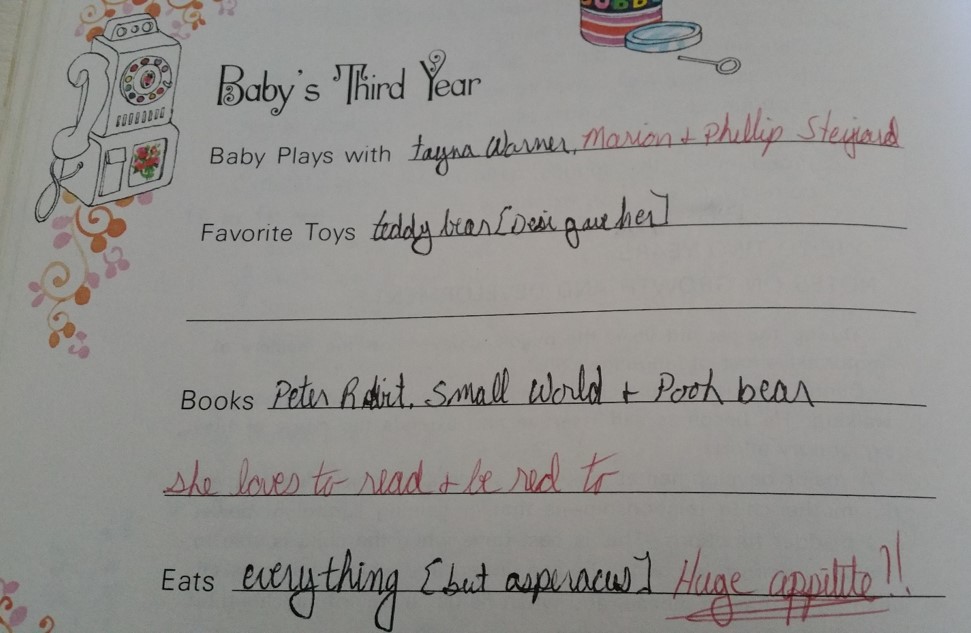 Baby's Third Year
Baby Plays with tayna Warner, Marion + Phillip Steijard
Favorite Toys teddy bear [Desi gave her]
Books Peter Rabit, Small World + Pooh bear
she loves to read + be red to
Eats everything [but asperacus] Huge appitite!!